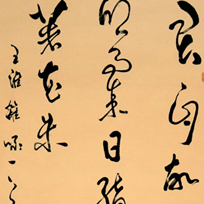 君自故
鄉事來日綺
著花未
王維雜咏一